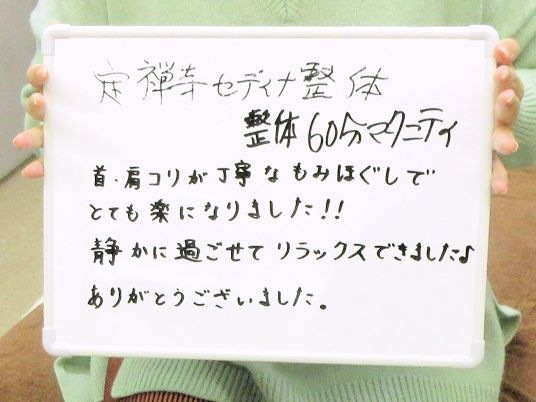 定禅寺セディナ整体
整体60分マタニティ
首・肩コリが丁寧なもみほぐしで
とても楽になりました!!
静かに過ごせてリラックスできました♪
ありがとうございました。